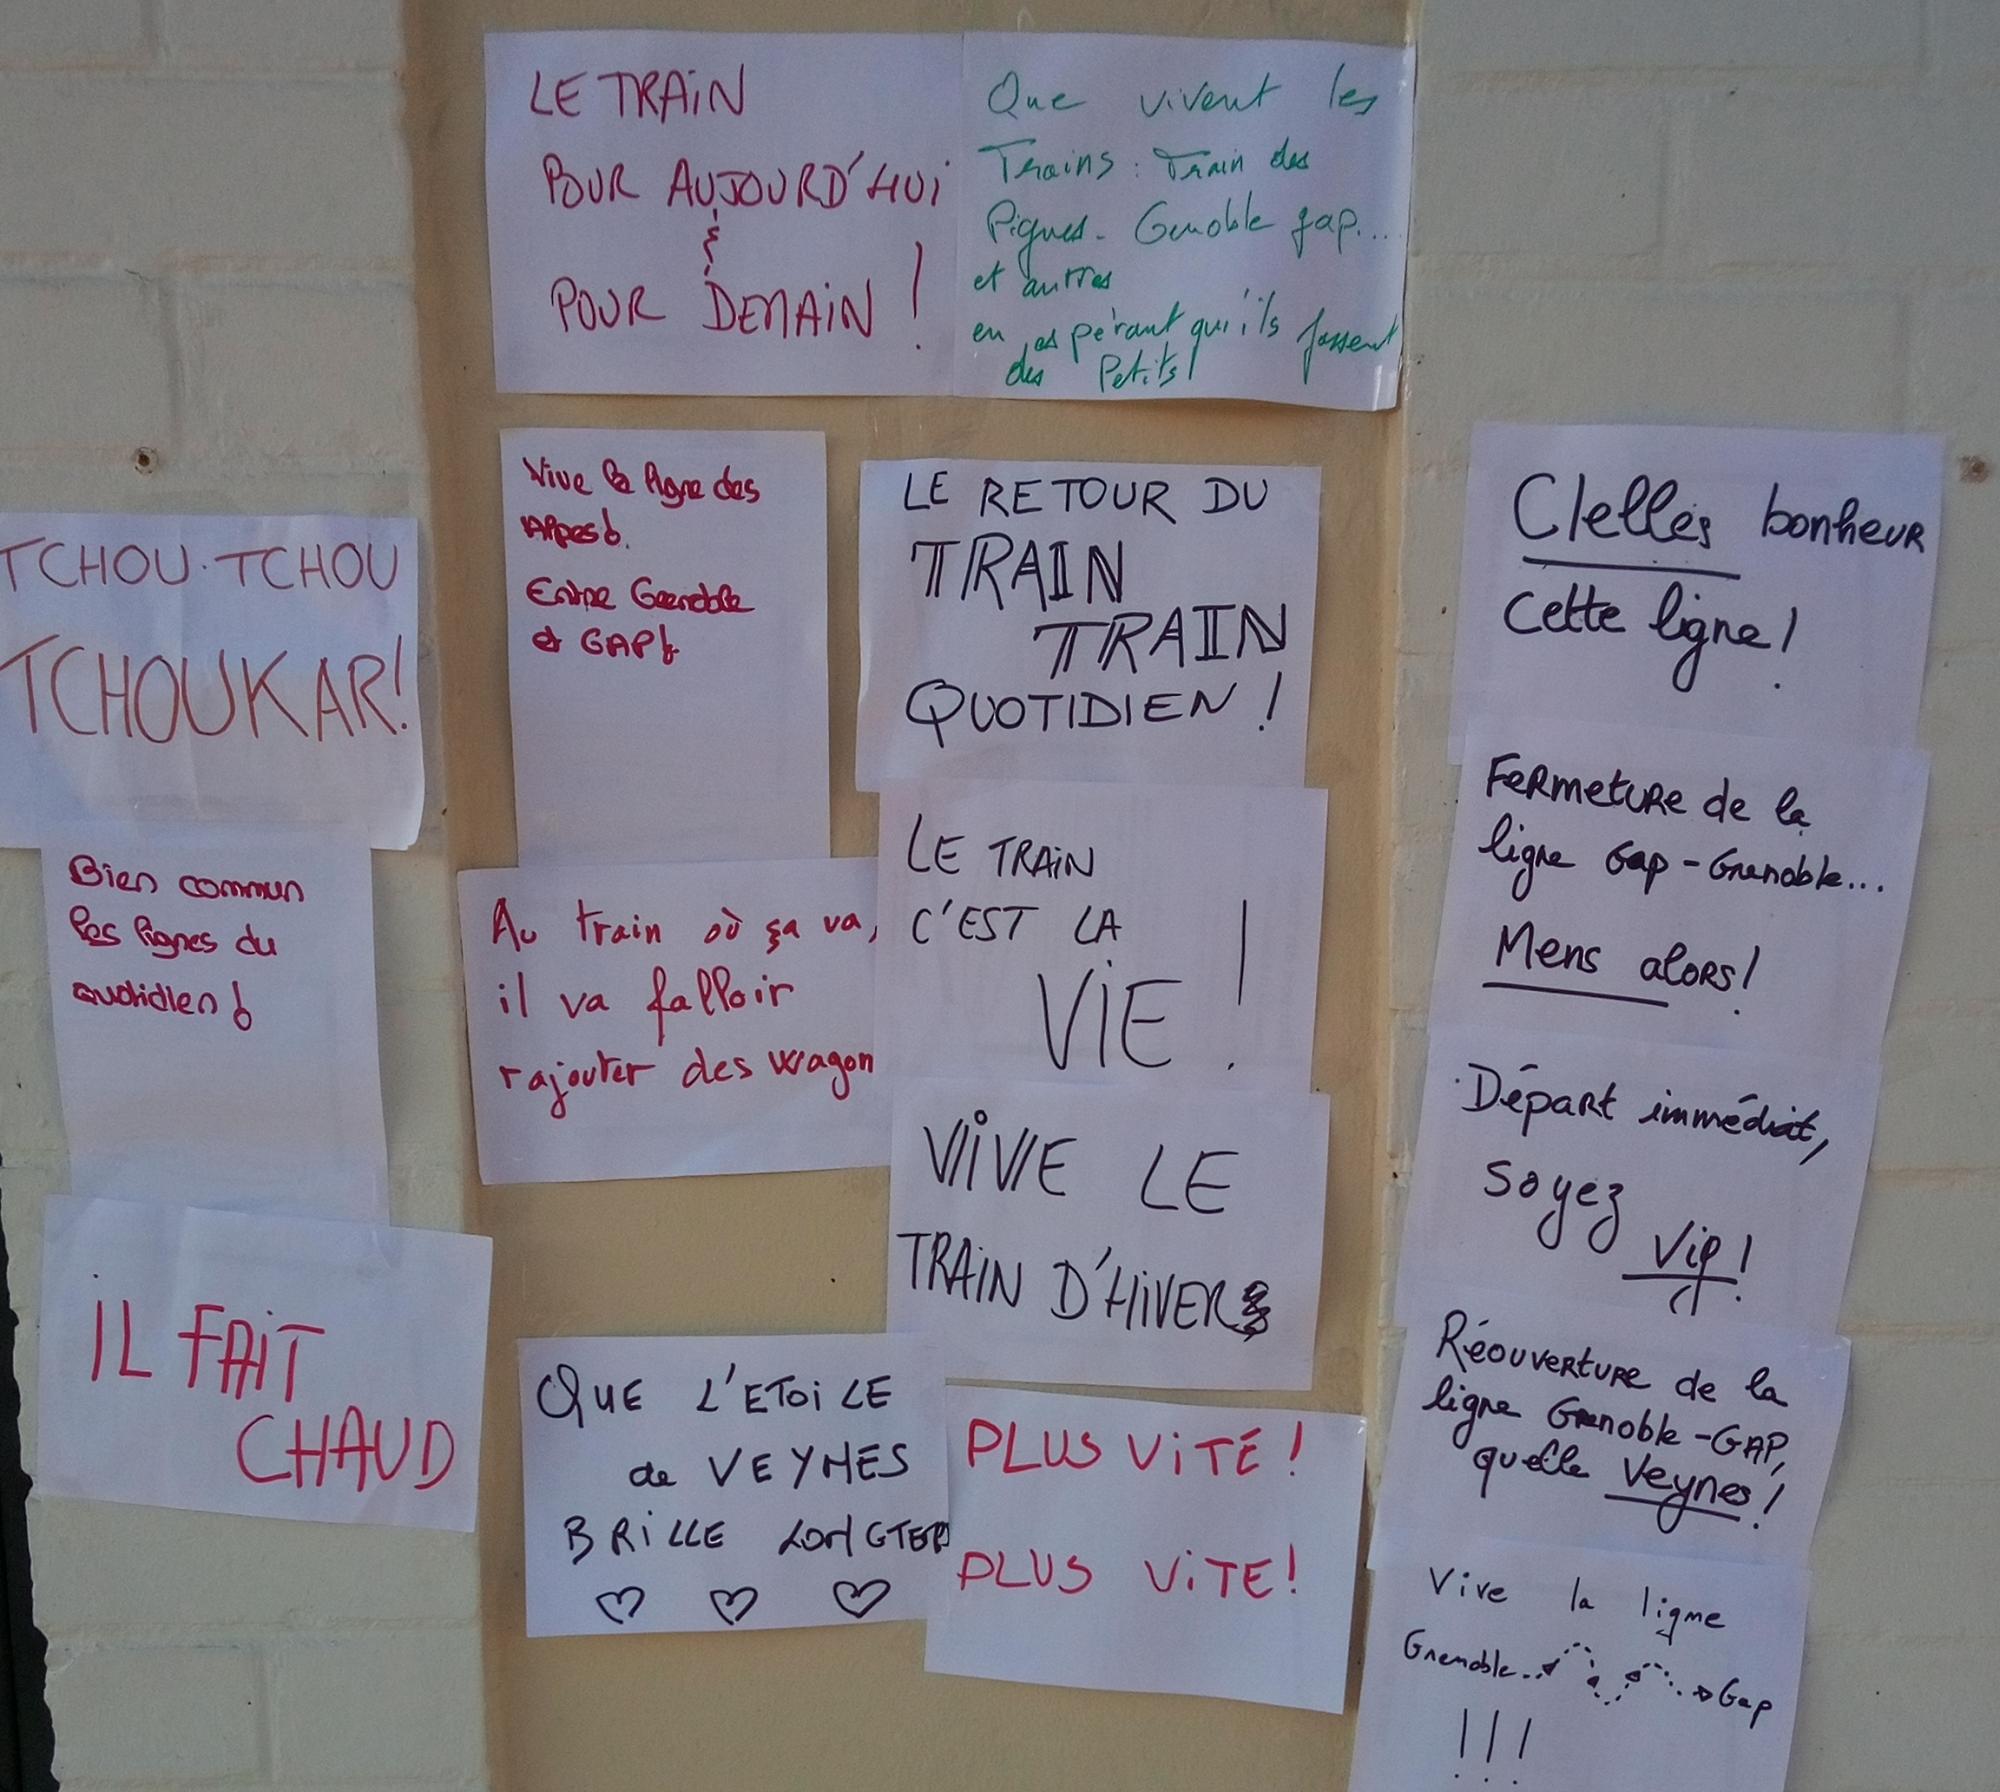 LE TRAIN
POUR AUJOURD'HUI
&
POUR DEMAIN !
Que vivent les
Trains : Train des
Pignes - Grenoble gap...
et autres
en espérant qui'ils fassent
des Petits!
TCHOU·TCHOU
TCHOUKAR!
Bien commun
les lignes du
quotidien !
IL FAIT
CHAUD
Vive la ligne des
Alpes !
Entre Grenoble
et GAP !
Au train où ça va,
il va falloir
rajouter des wagon
QUE L'ETOILE
de VEYNES
BRILLE LONGTEP
LE RETOUR DU
TRAIN
TRAIN
QUOTIDIEN !
LE TRAIN
C'EST LA
VIE !
VIVE LE
TRAIN D'HIVER
PLUS VITE !
PLUS VITE !
Clelles bonheur
cette ligne !
Fermeture de la
ligne Gap - Grenoble...
Mens alors !
Départ immédiat,
soyez
Vif !
Réouverture de la
ligne Grenoble - GAP,
quelle Veynes !
Vive la ligne
Grenoble Gap
!!!